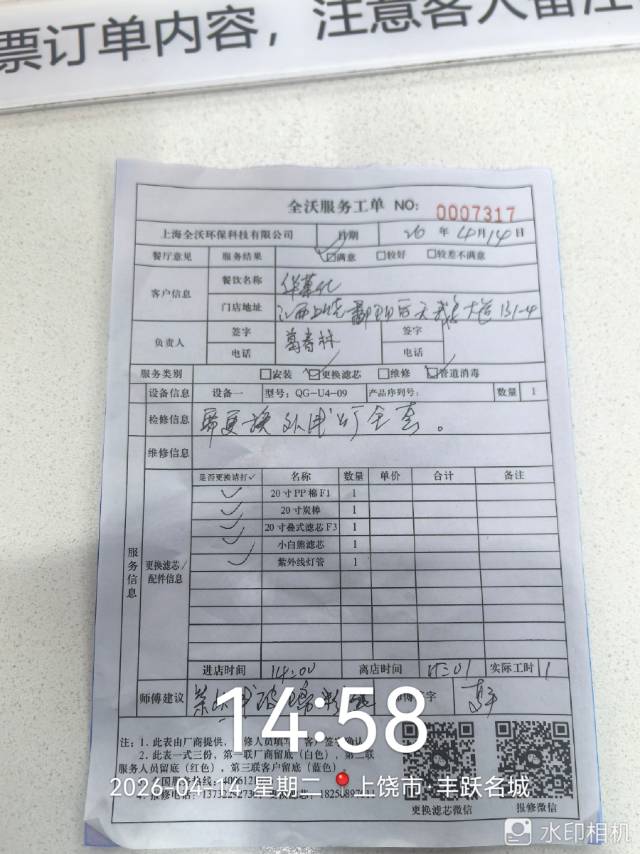 票订单内容，注意客人备注
全沃服务工单 NO: 0007317
上海全沃环保科技有限公司 日期 26 年 4月14日
餐厅意见 服务结果 ☑满意 □较好 □较差不满意
客户信息 餐饮名称 华莱士
门店地址 江西上饶 大道131-4
负责人 签字 葛春林 签字
电话 电话
服务类别 □安装 ☑更换滤芯 □维修 ☑管道消毒
设备信息 设备一 型号: QG-U4-09 产品序列号: 数量 1
检修信息 需更换 灯全套。
维修信息
服务信息
更换滤芯/配件信息
是否更换请打✓ 名称 数量 单价 合计 备注
✓ 20寸PP棉F1 1
✓ 20寸炭棒 1
✓ 20寸叠式滤芯F3 1
✓ 小白熊滤芯 1
✓ 紫外线灯管 1
进店时间 14:00 离店时间 15:01 实际工时 1
师傅建议 签字
14:58
注: 1. 此表由厂商提供, 维修人员填写, 客户签字确认
2. 此表一式三份, 第一联厂商留底(白色), 第二联
服务人员留底(红色), 第三联客户留底(蓝色)
2026-04-14 星期二 上饶市·丰跃名城
更换滤芯微信 报修微信
水印相机